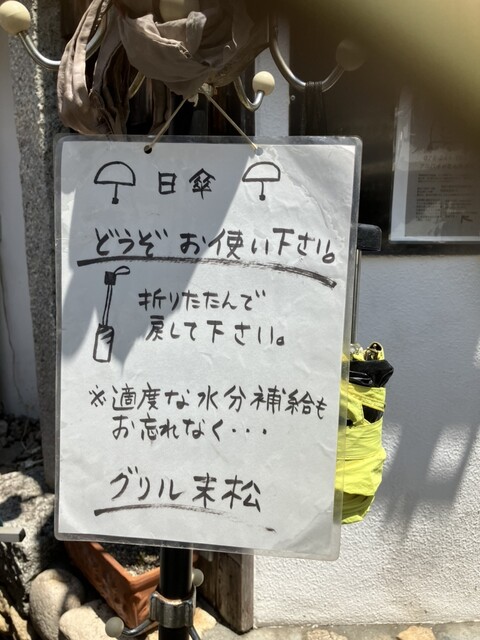 日傘
どうぞ お使い下さい。
折りたたんで
戻して下さい。
※適度な水分補給も
お忘れなく・・・
グリル末松